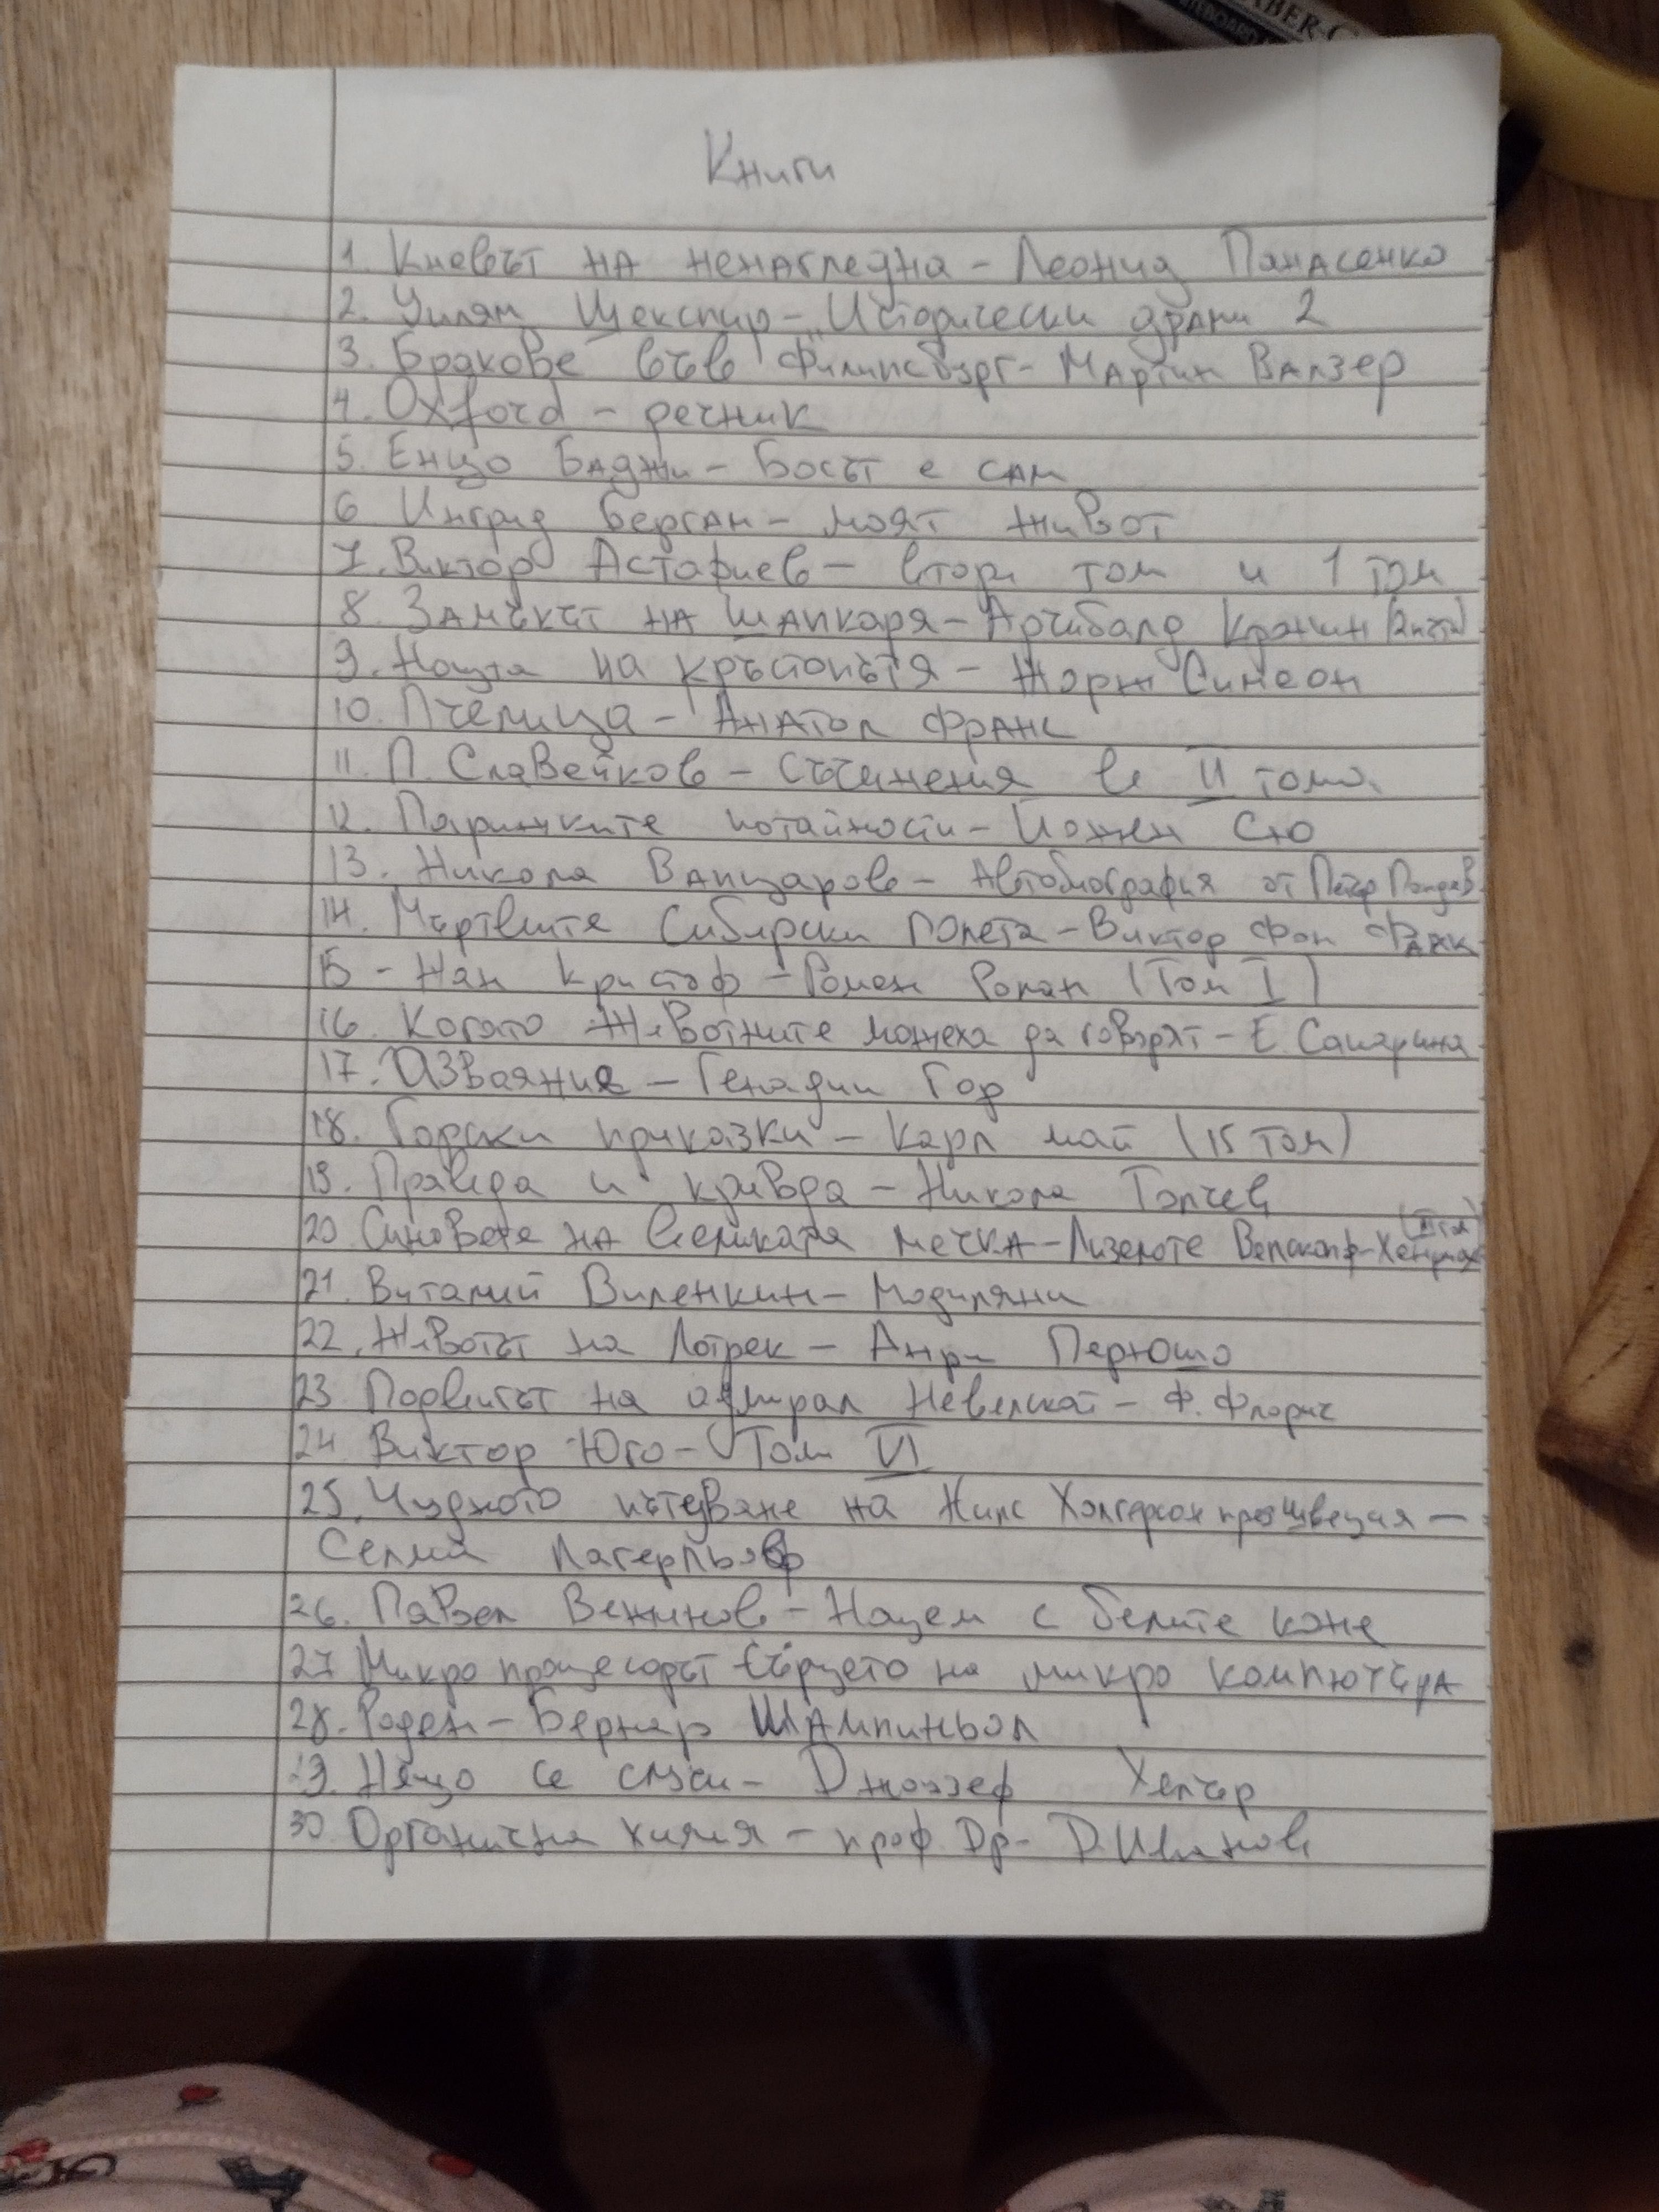 BER-C
BOARD
Книги
1. Кневът на ненагледна - Леонид Панасенко
2. Уилям Щекспир - "Исторически драми 2
3. Бракове във Филипсбург - Мартин Валзер
4. Oxford - речник
5. Енцо Баджи - Босът е сам
6 Ингрид Берган - моят живот
7. Виктор Астафиев - втори том и 1 том
8. Замъкът на шапкаря - Арчибалд Кронин
9. Нощта на кръстопътя - Жорж Симеон
10. Пчелица - Анатол Франс
11. П. Славейков - Съчинения в II тома.
12. Парижките потайности - Йожен Сю
13. Никола Вапцаров - Автобиография от Петър
14. Мъртвите Сибирски полета - Виктор Фон
15 - Жан Кристоф - Ромен Ролан (Том I)
16. Когато животните можеха да говорят - Е.
17. Изваяние - Генадий Гор
18. Горски приказки - Карл май (15 том)
19. Правда и кривда - Никола Тончев
20 Синовете на великата мечка - Лизелоте Велскопф-Хенрих
21. Виталий Виленкин - Модиляни
22. Животът на Лотрек - Анри Перюшо
23. Подвигът на адмирал Невелской - Ф.
24. Виктор Юго - Том VI
25. Чудното пътуване на Нилс Холгерсон през Швеция -
Селма Лагерльоф
26. Павел Вежинов - Нощем с белите коне
27 Микро процесорът сърцето на микро компютъра
28. Роден - Бернар Шампиньол
29. Нещо се случи - Джоузеф Хелър
30 Органична химия - проф. Др - Д. Иванов